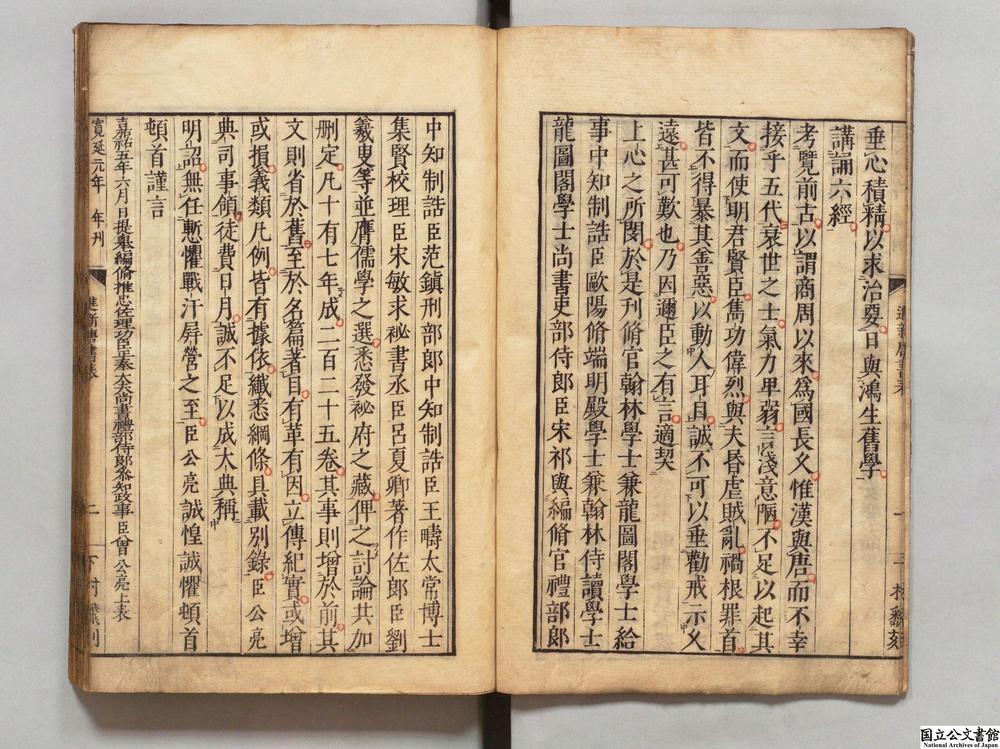 垂心積精以求治要日與鴻生舊學
講誦六經
考覽前古以謂商周以來爲國長久惟漢與唐而不幸
接乎五代衰世之士氣力卑弱言淺意陋不足以起其
文而使明君賢臣雋功偉烈與夫昏虐賊亂禍根罪首
皆不得暴其善惡以動人耳目誠不可以垂勸戒示久
遠甚可歎也乃因邇臣之有言適契
上心之所閔於是刊脩官翰林學士兼龍圖閣學士給
事中知制誥臣歐陽脩端明殿學士兼翰林侍讀學士
龍圖閣學士尚書吏部侍郎臣宋祁與編脩官禮部郎
中知制誥臣范鎭刑部郎中知制誥臣王疇太常博士
集賢校理臣宋敏求祕書丞臣呂夏卿著作佐郎臣劉
羲叟等並膺儒學之選悉發祕府之藏俾之討論共加
刪定凡十有七年成二百二十五卷其事則增於前其
文則省於舊至於名篇著目有革有因立傳紀實或增
或損義類凡例皆有據依纖悉綱條具載別錄臣公亮
典司事領徒費日月誠不足以成大典稱
明詔無任慙懼戰汗屏營之至臣公亮誠惶誠懼頓首
頓首謹言
嘉祐五年六月日提舉編脩推忠佐理功臣正奉大夫尚書禮部侍郎參知政事臣曾公亮上表
寬延元年 年刊
進新唐書表
二
國立公文書館
National Archives of Japan